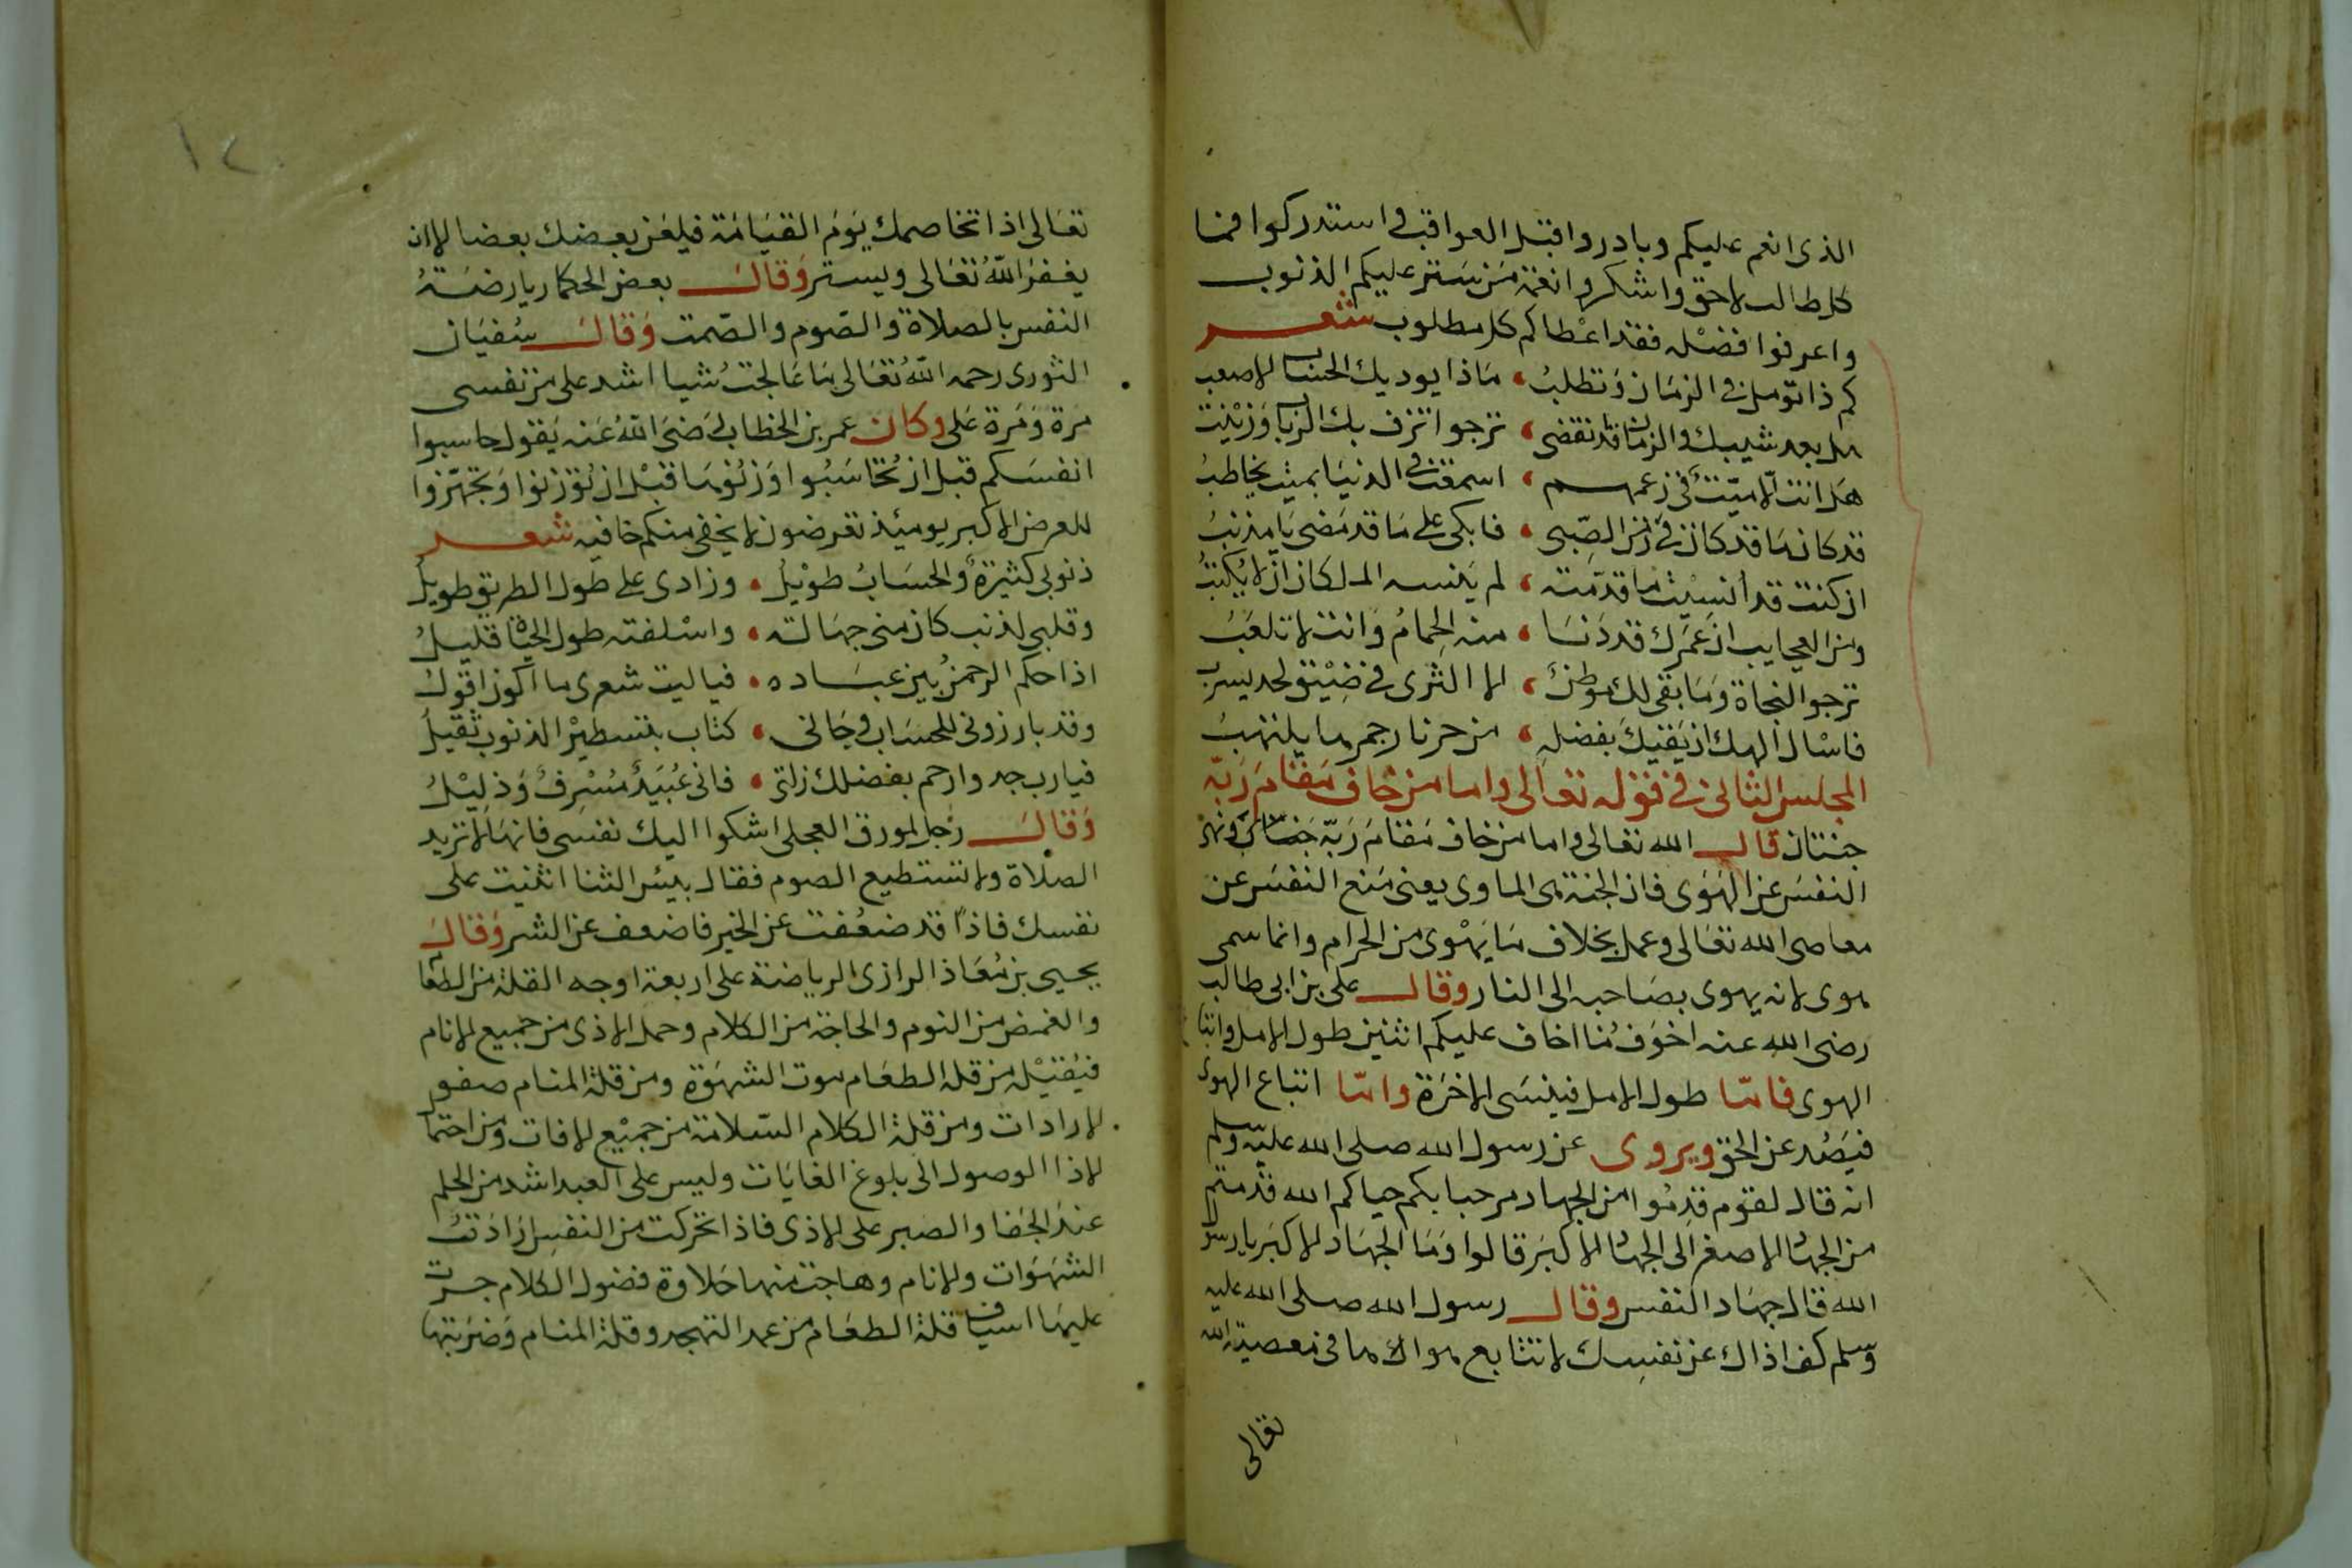 الذى انعم عليكم وبادروا قبل العواقب واستدركوا فما
كل طالب لاحق واشكروا نعمة من ستر عليكم الذنوب
واعرفوا فضله فقد اعطاكم كل مطلوب شعر
كم ذا تؤمل فى الزمان وتطلب ماذا يوديك الحساب الاصعب
هل بعد شيبك والزمان قد نقضى ترجوا تزف بك الرباب وزينب
هل انت الا ميت فى زعمهم اسمعت فى الدنيا بميت يخاطب
قد كان ما قد كان فى زمن الصبى فابكى على ما قد مضى يا مذنب
ان كنت قد انسيت ما قدمته لم ينسه الملكان ان لا يكتب
ومن العجايب ان عمرك قد دنا منه الحمام وانت لاه تلعب
ترجو النجاة وما بقى لك موطن الا الثرى فى ضيق لحد يسرب
فاسال الهك ان يقيك بفضله من حر نار جمرها يلتهب
المجلس الثانى فى قوله تعالى واما من خاف مقام ربه
جنتان قال الله تعالى واما من خاف مقام ربه جنتان ونهى
النفس عن الهوى فان الجنة هى الماوى يعنى منع النفس عن
معاصى الله تعالى وعمل بخلاف ما يهوى من الحرام وانما سمى
هوى لانه يهوى بصاحبه الى النار وقال على بن ابى طالب
رضى الله عنه اخوف ما اخاف عليكم اثنين طول الامل واتباع
الهوى فاما طول الامل فينسى الاخرة واما اتباع الهوى
فيصد عن الحق ويروى عن رسول الله صلى الله عليه وسلم
انه قال لقوم قدموا من الجهاد مرحبا بكم حياكم الله قدمتم
من الجهاد الاصغر الى الجهاد الاكبر قالوا وما الجهاد الاكبر يا رسول
الله قال جهاد النفس وقال رسول الله صلى الله عليه
وسلم كف اذاك عن نفسك لا تتابع هواها فى معصية الله
تعالى
١٢
تعالى اذا تخاصمك يوم القيامة فيلعن بعضك بعضا الا ان
يغفر الله تعالى ويستر وقال بعض الحكماء رياضة
النفس بالصلاة والصوم والصمت وقال سفيان
الثورى رحمه الله تعالى ما عالجت شيا اشد على من نفسى
مرة ومرة على وكان عمر بن الخطاب رضى الله عنه يقول حاسبوا
انفسكم قبل ان تحاسبوا وزنوها قبل ان توزنوا وتجهزوا
للعرض الاكبر يوميئذ تعرضون لا يخفى منكم خافيه شعر
ذنوبى كثيرة والحساب طويل وزادى على طول الطريق طويل
وقلبى لذنب كان منى جهالة واسلفته طول الحياة قليل
اذا حكم الرحمن بين عباده فياليت شعرى ما اكون اقول
وقد بارزونى للحساب وجانى كتاب بتسطير الذنوب ثقيل
فيارب جد وارحم بفضلك زلتى فانى عبيد مسرف وذليل
وقال رجل لمورق العجلى اشكوا اليك نفسى فانها لا تريد
الصلاة ولا تستطيع الصوم فقال بيس الثنا اثنيت على
نفسك فاذا قد ضعفت عن الخير فاضعف عن الشر وقال
يحيى بن معاذ الرازى الرياضة على اربعة اوجه القلة من الطعام
والغمض من النوم والحاجة من الكلام وحمل الاذى من جميع الانام
فيقتيل من قلة الطعام موت الشهوة ومن قلة المنام صفو
الارادات ومن قلة الكلام السلامة من جميع الافات ومن احتمال
الاذا الوصول الى بلوغ الغايات وليس على العبد اشد من الحلم
عند الجفا والصبر على الاذى فاذا تحركت من النفس ارادة
الشهوات والانام وهاجت منها حلاوة فضول الكلام جرت
عليها اسياف قلة الطعام من عمد التهجد وقلة المنام وضربتها